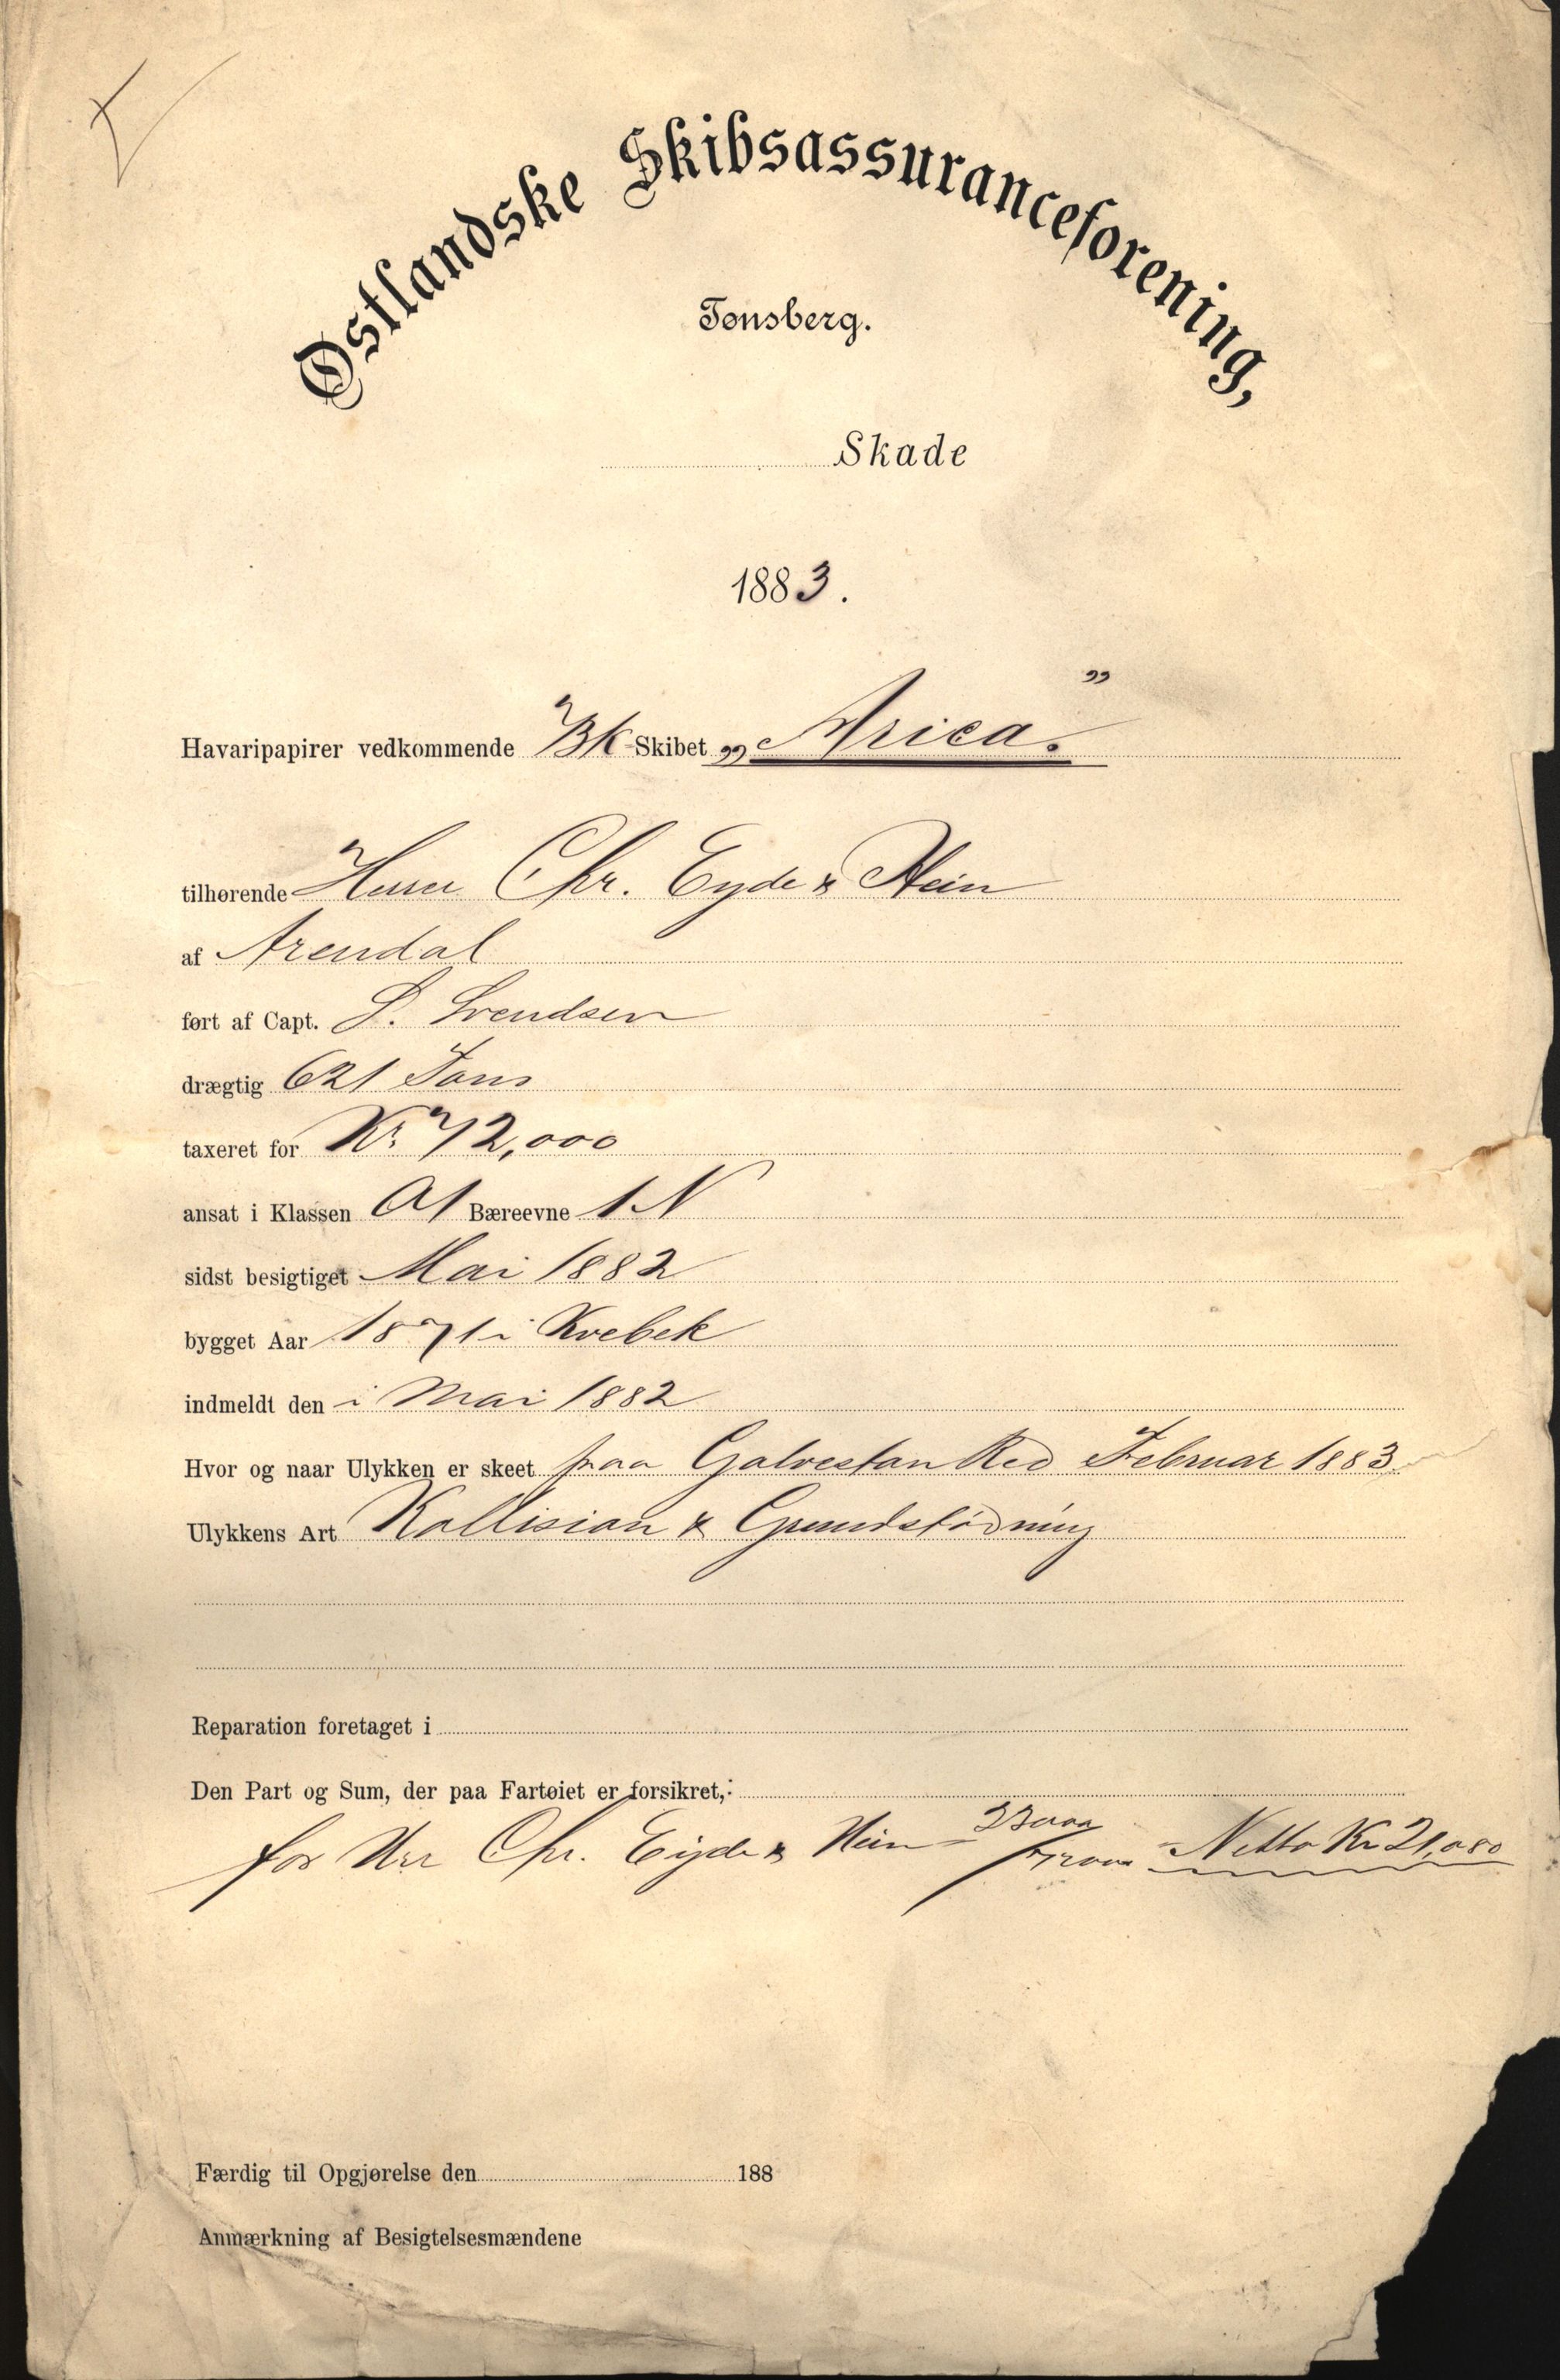 Østlandske Skibsassuranceforening,
Tønsberg.
Skade
1883.
Havaripapirer vedkommende Bk Skibet „Arica"
tilhørende Herrer Chr. Eyde & Hein
af Arendal
ført af Capt. S. Svendsen
drægtig 621 Tons
taxeret for Kr. 72,000
ansat i Klassen A1 Bæreevne 1 N
sidst besigtiget Mai 1882
bygget Aar 1871 i Kvebek
indmeldt den i Mai 1882
Hvor og naar Ulykken er skeet paa Galveston Red Februar 1883
Ulykkens Art Kollision & Grundstødning
Reparation foretaget i
Den Part og Sum, der paa Fartøiet er forsikret,:
for Chr. Eijde & Hein Netto Kr 21,080
Færdig til Opgjørelse den 188
Anmærkning af Besigtelsesmændene